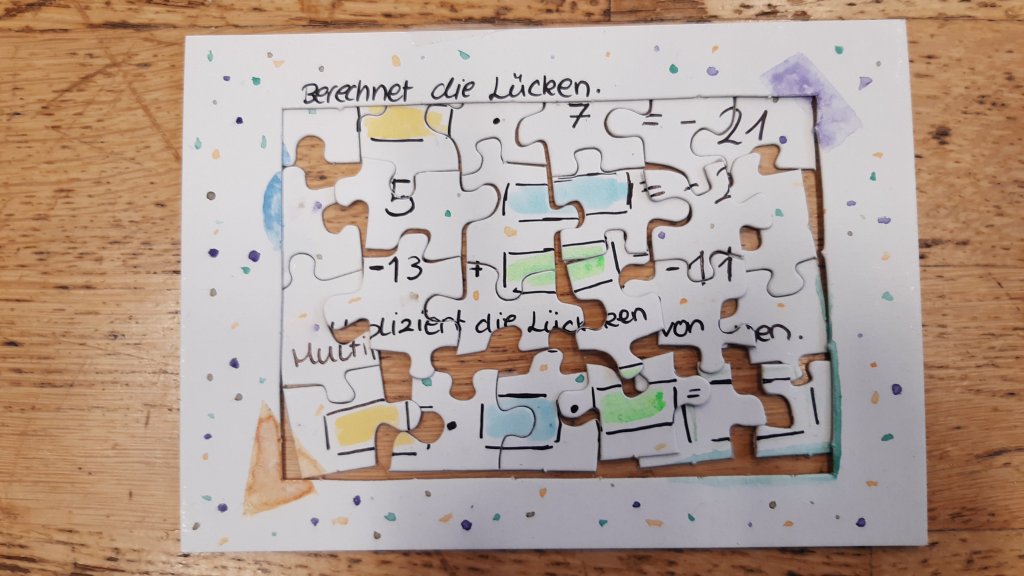 Berechnet die Lücken.
· 7 = - 21
5 = - 2
-13 + = -11
Multipliziert die Lücken von
· · =